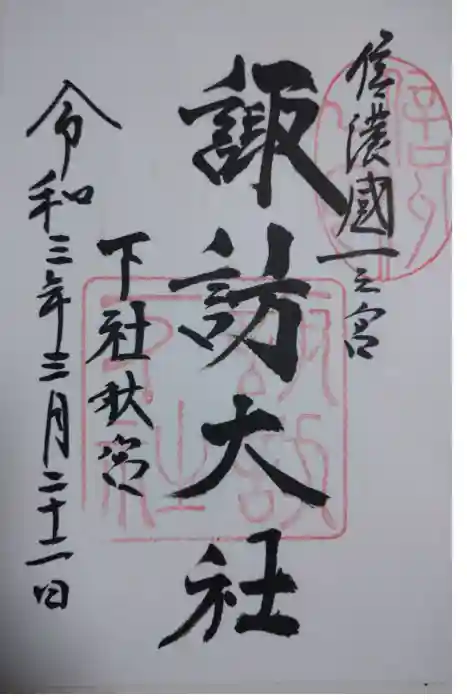 信濃國一之宮
諏訪大社
下社秋宮
令和三年三月二十二日